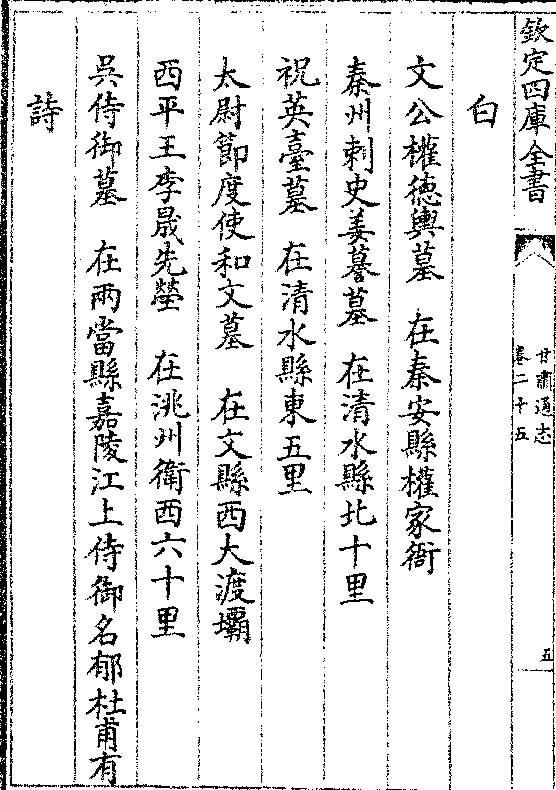 欽定四庫全書
甘肅通志
卷二十五
五
白
文公權德輿墓 在秦安縣權家衙
秦州刺史姜謩墓 在清水縣北十里
祝英臺墓 在清水縣東五里
太尉節度使和文墓 在文縣西大渡壩
西平王李晟先塋 在洮州衛西六十里
吳侍御墓 在兩當縣嘉陵江上侍御名郁杜甫有
詩